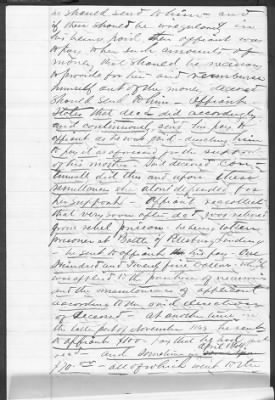 is should sent to him - and
if there should be irregularity in
his being paid then affiant was
to pay when such amounts of
money, that should be necessary
to provide for her and reimburse
himself out of the money deceased
should send to him - Affiant
States that decd did accordingly
and continuously, send his pay to
affiant as before said - directing him
to pay it as aforesaid for the support
of his mother - Said deceased con-
tinually did this and upon these
remittances she alone depended for
her support - Affiant recollects
that very soon after decd was released
from rebel prison - he being taken
prisoner at Battle of Pittsburg Landing
- he sent to affiant his pay - One
Hundred and Twenty five Dollars which
was applied to the
and the maintenance of applicant
according to the said directions
of deceased - at another time in
the latter part of November 1863, he sent
to affiant $100 - pay that he had
April 1864.
and
$70.00 - all of which went to the